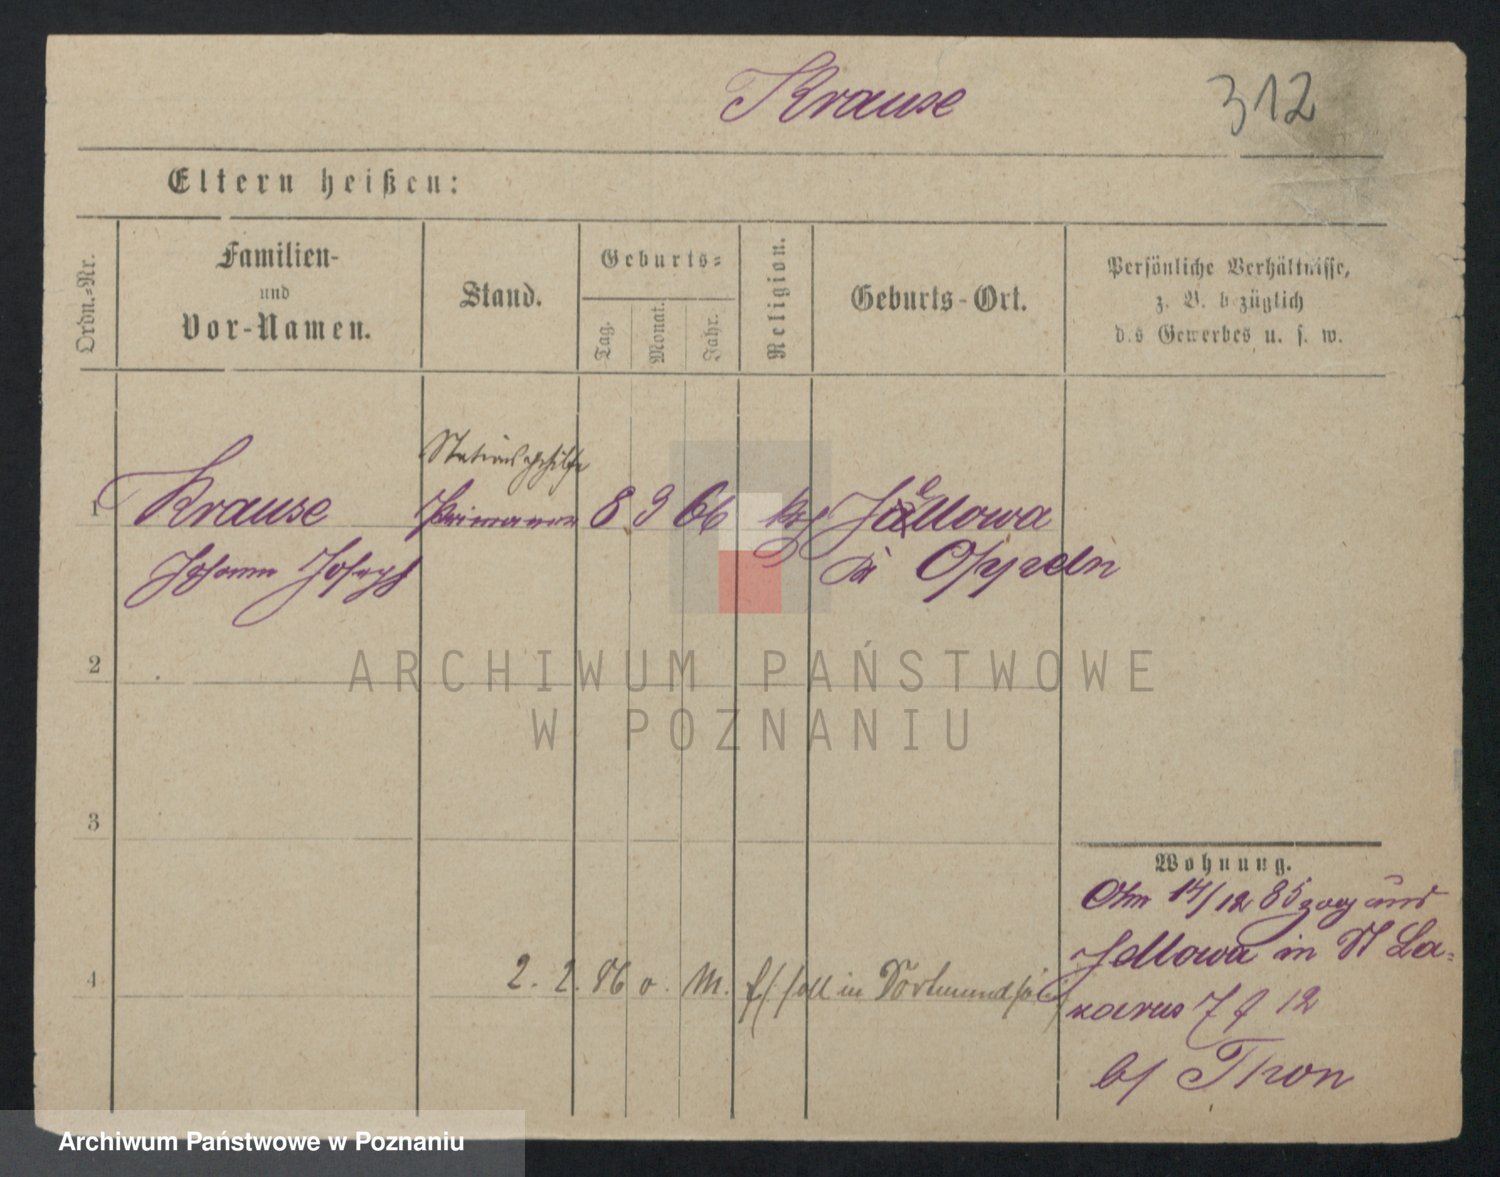 Krause
312
Eltern heißen:
Ordn.-Nr.
Familien-
und
Vor-Namen.
Stand.
Geburts-
Tag.
Monat.
Jahr.
Religion.
Geburts-Ort.
Persönliche Verhältnisse,
z. B. bezüglich
des Gewerbes u. s. w.
Stationsgehilfe
1 Krause Primaner 8 3 66 Jellowa
Johann Joseph Oppeln
2
ARCHIWUM PAŃSTWOWE
W POZNANIU
3
Wohnung.
14/12 85 zog aus
Jellowa in St La-
4 2. 2. 86 o. M. soll in Dortmund
zarus 7 12
b/ Thon
Archiwum Państwowe w Poznaniu